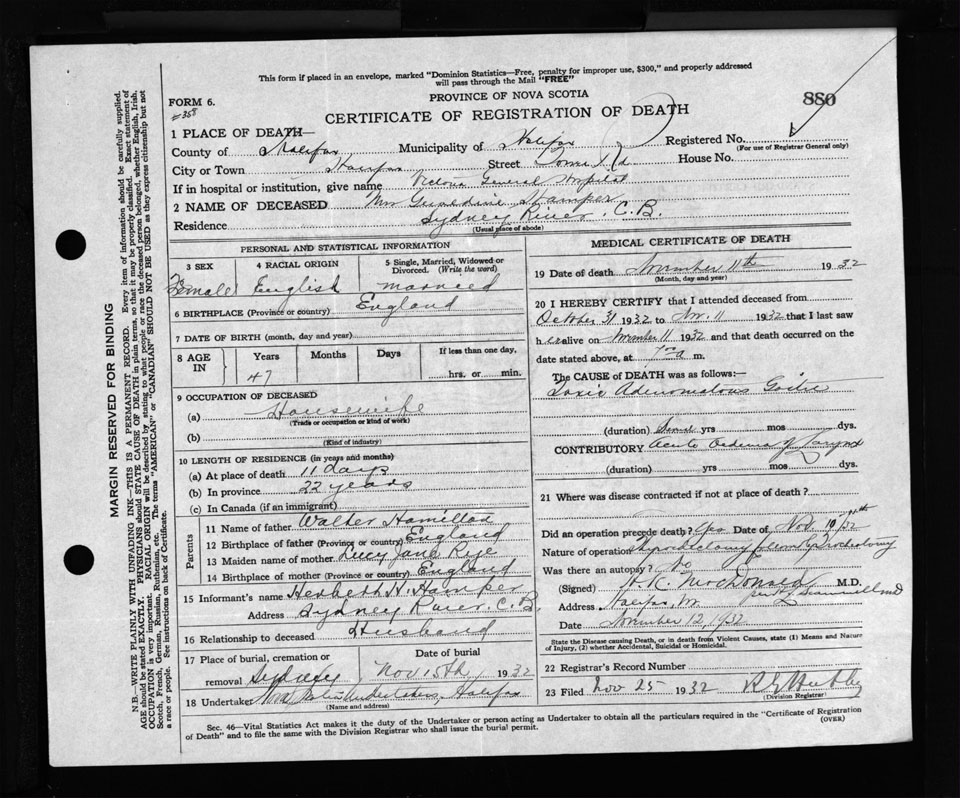 This form if placed in an envelope, marked "Dominion Statistics—Free, penalty for improper use, $300," and properly addressed
will pass through the Mail "FREE"
PROVINCE OF NOVA SCOTIA
FORM 6.
#358
880
CERTIFICATE OF REGISTRATION OF DEATH
1 PLACE OF DEATH—
County of Halifax Municipality of Halifax Registered No.
(For use of Registrar General only)
City or Town Halifax Street House No.
If in hospital or institution, give name Victoria General Hospital
2 NAME OF DECEASED Mrs Geraldine Hamper
Residence Sydney River. C.B.
(Usual place of abode)
PERSONAL AND STATISTICAL INFORMATION
3 SEX
Female
4 RACIAL ORIGIN
English
5 Single, Married, Widowed or
Divorced. (Write the word)
married
6 BIRTHPLACE (Province or country) England
7 DATE OF BIRTH (month, day and year)
8 AGE IN
Years Months Days If less than one day,
47 hrs. or min.
9 OCCUPATION OF DECEASED
(a) Housewife
(Trade or occupation or kind of work)
(b)
(Kind of industry)
10 LENGTH OF RESIDENCE (in years and months)
(a) At place of death 11 days
(b) In province 22 years
(c) In Canada (if an immigrant)
Parents
11 Name of father Walter Hamilton
12 Birthplace of father (Province or country) England
13 Maiden name of mother Lucy Jane Rye
14 Birthplace of mother (Province or country) England
15 Informant's name Herbert H. Hamper
Address Sydney River. C.B.
16 Relationship to deceased Husband
17 Place of burial, cremation or
removal Sydney
Date of burial
Nov 15th, 1932
18 Undertaker Undertaker, Halifax
(Name and address)
MEDICAL CERTIFICATE OF DEATH
19 Date of death November 11th 1932
(Month, day and year)
20 I HEREBY CERTIFY that I attended deceased from
October 31 1932 to Nov. 11 1932 that I last saw
her alive on November 11 1932 and that death occurred on the
date stated above, at m.
The CAUSE of DEATH was as follows:
Toxic Adenomatous Goitre
(duration) yrs mos dys.
CONTRIBUTORY Acute Oedema of Larynx
(duration) yrs mos dys.
21 Where was disease contracted if not at place of death?
Did an operation precede death? Yes Date of Nov. 10th/32
Nature of operation
Was there an autopsy? No
(Signed) H. K. MacDonald M.D.
Address Halifax
Date November 12, 1932
State the Disease causing Death, or in death from Violent Causes, state (1) Means and Nature
of Injury, (2) whether Accidental, Suicidal or Homicidal.
22 Registrar's Record Number
23 Filed Nov 25 1932
(Division Registrar)
Sec. 46—Vital Statistics Act makes it the duty of the Undertaker or person acting as Undertaker to obtain all the particulars required in the "Certificate of Registration
of Death" and to file the same with the Division Registrar who shall issue the burial permit.
(OVER)
MARGIN RESERVED FOR BINDING
N.B.—WRITE PLAINLY WITH UNFADING INK—THIS IS A PERMANENT RECORD. Every item of information should be carefully supplied.
AGE should be stated EXACTLY. PHYSICIANS should STATE CAUSE OF DEATH in plain terms, so that it may be properly classified. Exact statement of
OCCUPATION is very important. RACIAL ORIGIN will be described by stating to what people or race the deceased person belonged, whether English, Irish,
Scotch, French, German, Russian, Ruthenian, etc. The terms "AMERICAN" or "CANADIAN" SHOULD NOT BE USED as they express citizenship but not
a race or people. See instructions on back of Certificate.